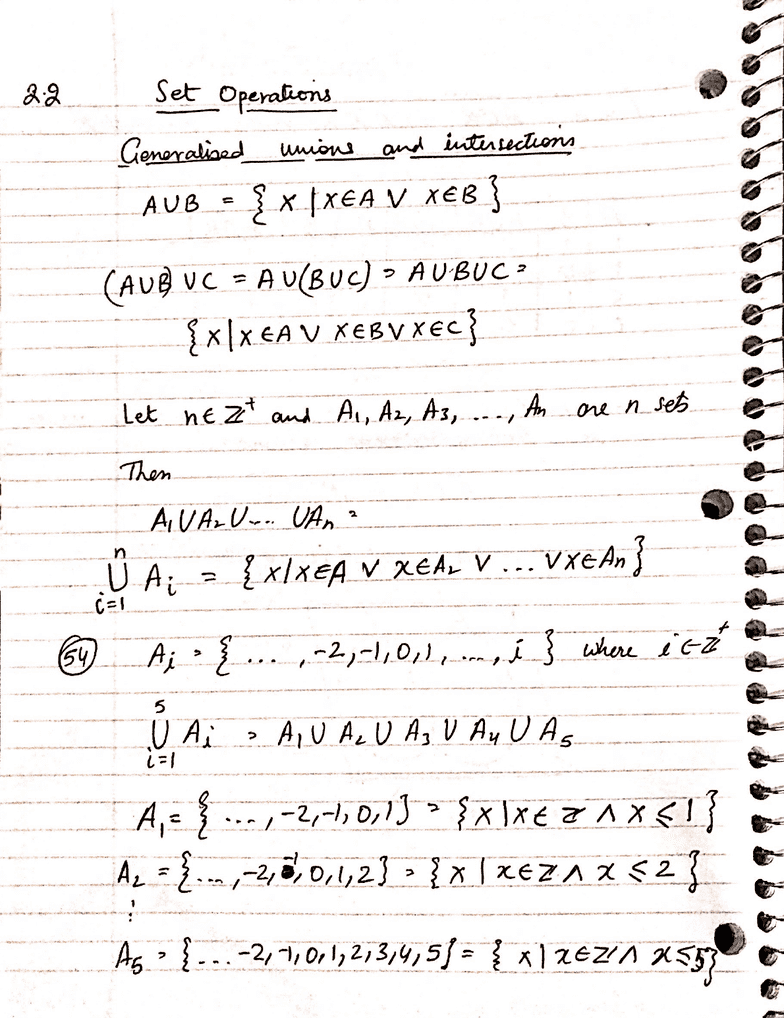 2.2 Set Operations
Generalised unions and intersections
A∪B = { x | x∈A ∨ x∈B }
(A∪B)∪C = A∪(B∪C) = A∪B∪C =
{x|x∈A ∨ x∈B∨x∈C}
Let n∈Z⁺ and A₁, A₂, A₃, ..., Aₙ are n sets
Then
A₁∪A₂∪... ∪Aₙ =
n
∪ Aᵢ = { x|x∈A ∨ x∈A₂ ∨ ... ∨x∈Aₙ}
i=1
54 Aᵢ = { ... , -2, -1, 0, 1, ..., i } where i∈Z⁺
5
∪ Aᵢ = A₁∪ A₂ ∪ A₃ ∪ A₄ ∪ A₅
i=1
A₁= { ..., -2, -1, 0, 1} = {x|x∈ Z ∧ x ≤ 1}
A₂ = {..., -2, -1, 0, 1, 2} = {x | x∈Z ∧ x ≤ 2 }
⋮
A₅ = {... -2, -1, 0, 1, 2, 3, 4, 5} = { x| x∈Z ∧ x≤5}